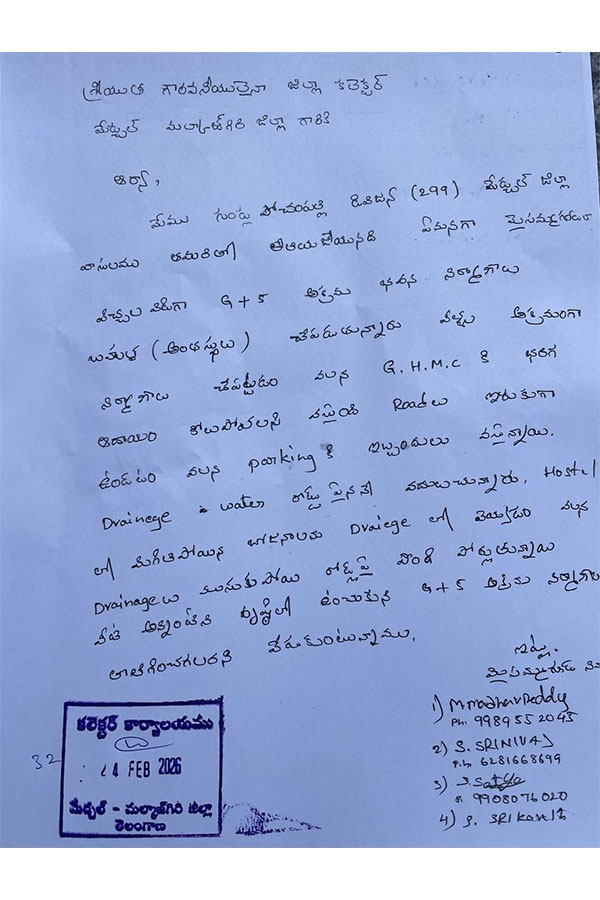 శ్రీయుత గౌరవనీయులైన జిల్లా కలెక్టర్
మేడ్చల్ మల్కాజ్‌గిరి జిల్లా గారికి
ఆర్యా,
మేము గుండ్ల పోచంపల్లి డివిజన్ (299) మేడ్చల్ జిల్లా
వాసులము తమరితో తెలియజేయునది ఏమనగా మైసమ్మగూడలో
విచ్చల విడిగా G + 5 అక్రమ భవన నిర్మాణాలు
బహుళ (అంతస్థులు) చేపడుతున్నారు వీళ్ళు అక్రమంగా
నిర్మాణాలు చేపట్టడం వలన G.H.M.C కి భారీగ
ఆదాయం కోల్పోవలసి వస్తుంది Roadలు ఇరుకుగా
ఉండటం వలన parking కి ఇబ్బందులు వస్తున్నాయి.
Drainege water రోడ్డు పైననే వదులుచున్నారు. Hostel
లో మిగిలిపోయిన భోజనాలను Draiege లో వేయడం వలన
Drainageలు మూసుకుపోయి రోడ్లపై పొంగి పోర్లుతున్నాయి
వీటి అన్నింటిని దృష్టిలో ఉంచుకుని G+5 అక్రమ నిర్మాణాలు
తొలగించగలరని వేడుకుంటున్నాము.
ఇట్లు,
మైసమ్మగూడ
1) M. madhav Reddy
Ph: 9989552045
2) S. SRINIVAS
P.h 6281668699
3) S. Satya
P. 9908076020
4) S. SRIKANTH
32
కలెక్టర్ కార్యాలయము
24 FEB 2026
మేడ్చల్ - మల్కాజ్‌గిరి జిల్లా
తెలంగాణ